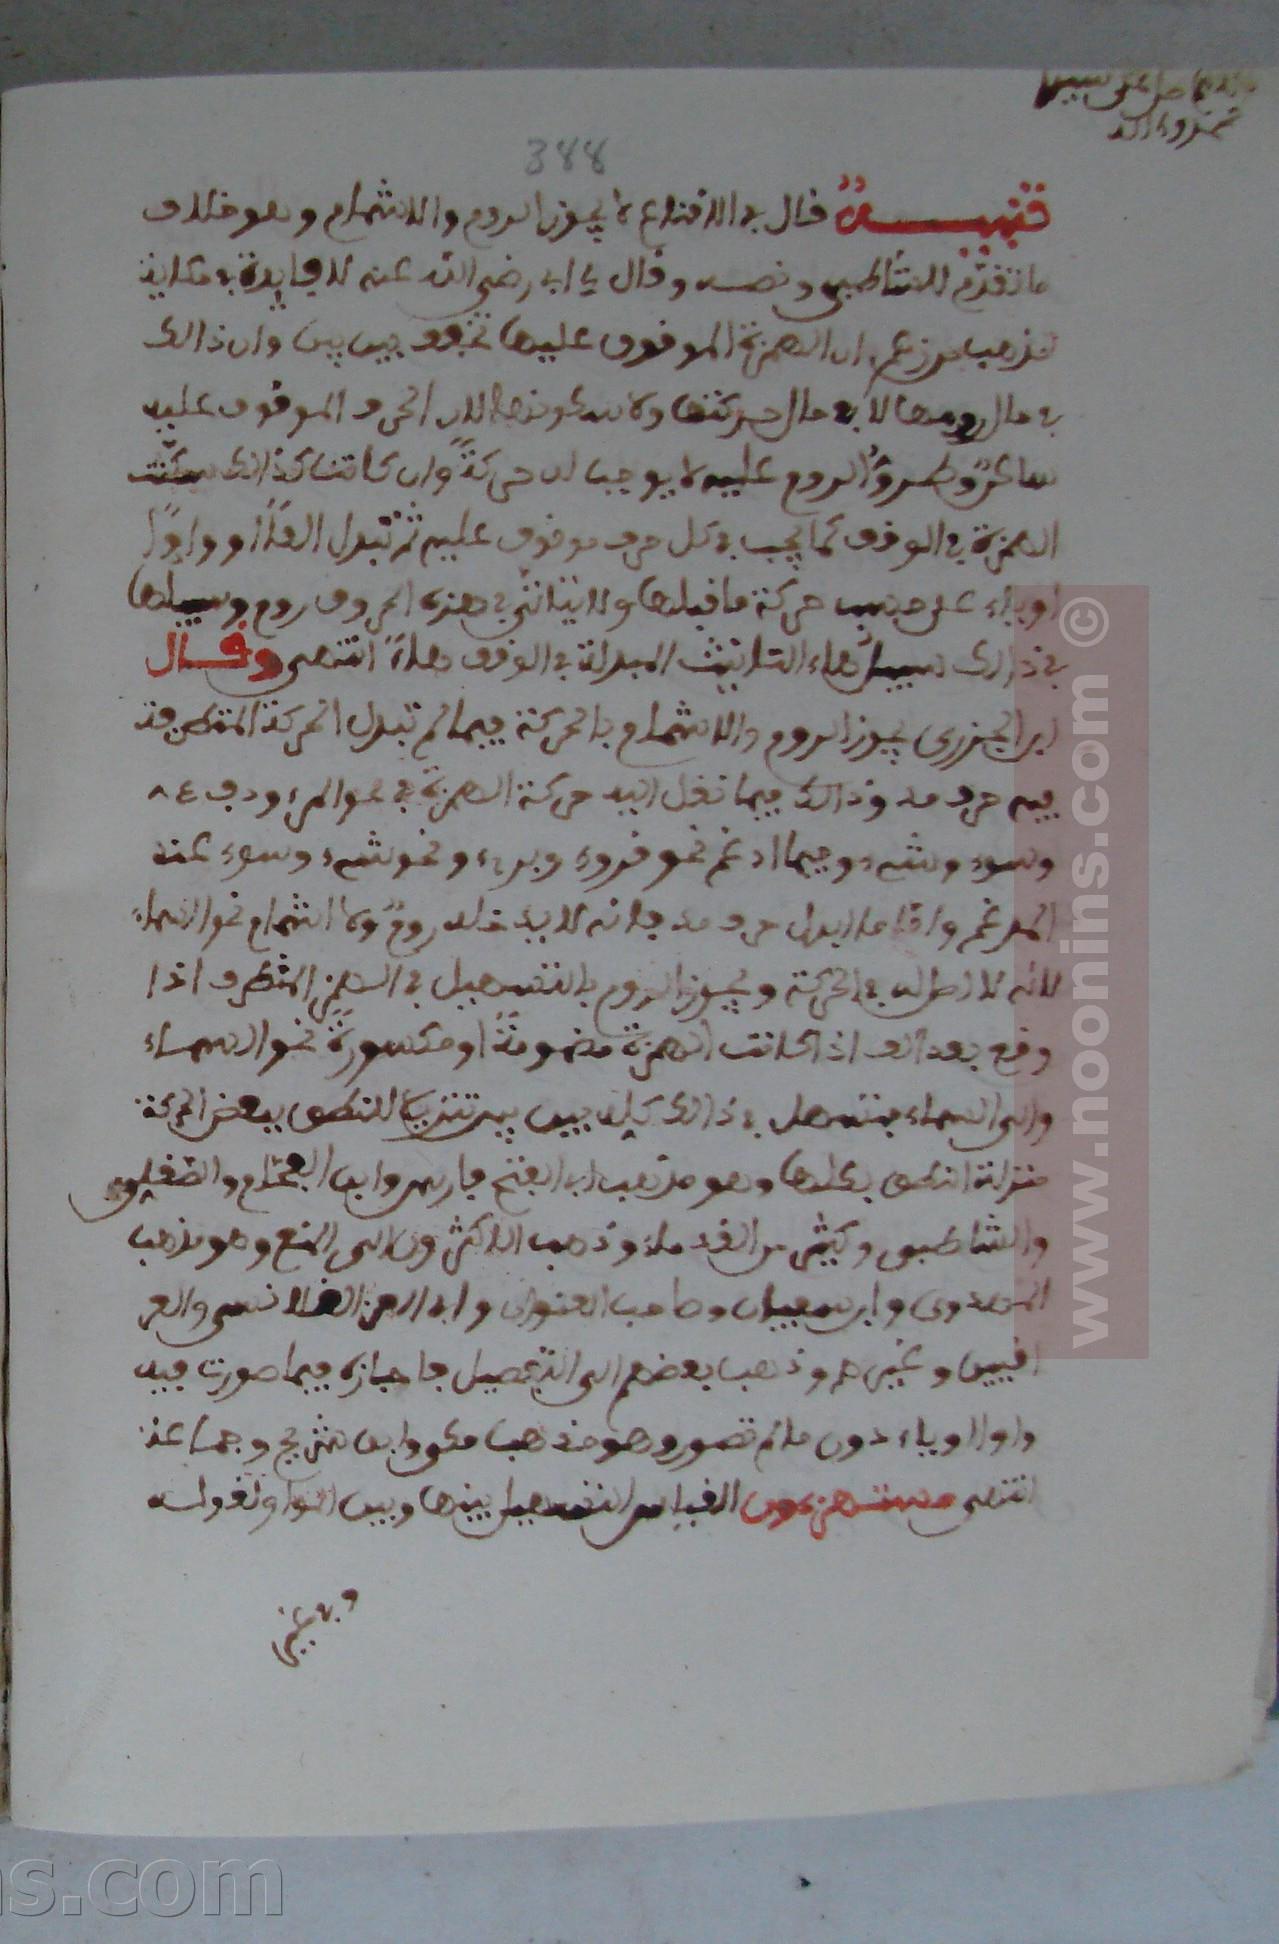 388
تنبيه قال في الاقناع لا يجوز الروم والاشمام وهو خلاف
ما تقدم للشاطبي ونصه وقال لي ابي رضي الله عنه لا فايدة في حكاية
مذهب من زعم ان الهمزة الموقوف عليها تخفف بين بين وان ذالك
في حال رومها لا في حال حركتها ولا سكونها لان الحرف الموقوف عليه
ساكن وطروّ الروم عليه لا يوجب له حركةً وان كان كذالك سكنت
الهمزة في الوقف كما يجب في كل حرف موقوف عليه ثم تبدل الفًا او واوًا
او ياء على حسب حركة ما قبلها ولا يتاتى في هذه الحروف روم وسبيلها
في ذالك سبيل هاء التانيث المبدلة في الوقف هاءً انتهى وقال
ابن الجزري يجوز الروم والاشمام بالحركة فيما لم تبدل الحركة المتطرفة
فيه حرف مد وذالك فيما نقل اليه حركة الهمزة نحو المرء ودفء
وسوء وشيء وفيما ادغم نحو قروء وبريء ونحو شيء وسوء عند
المدغم واما ما ابدل حرف مد فانه لا يدخله روم ولا اشمام نحو السماء
لانه لا اصل له في الحركة ويجوز الروم بالتسهيل في الهمز المتطرف اذا
وقع بعد الف اذا كانت الهمزة مضمومةً او مكسورةً نحو السماء
والى السماء فتسهل في ذالك كله بين بين تنزيلا للنطق ببعض الحركة
منزلة النطق بكلها وهو مذهب ابي الفتح فارس وابن الفحام والصقلي
والشاطبي وكثير من القدماء وذهب الاكثرون الى المنع وهو مذهب
المهدوي وابن سفيان وصاحب العنوان وابي العز القلانسي والعر
اقيين وغيرهم وذهب بعضهم الى التفصيل فاجازه فيما صورت فيه
واوا او ياء دون ما لم تصور وهو مذهب مكي وابن شريح وجماعة
انتهى مستهزءون القياس التسهيل بينها وبين الواو ولقوله
وفي غير
www.noonins.com ©
ns.com